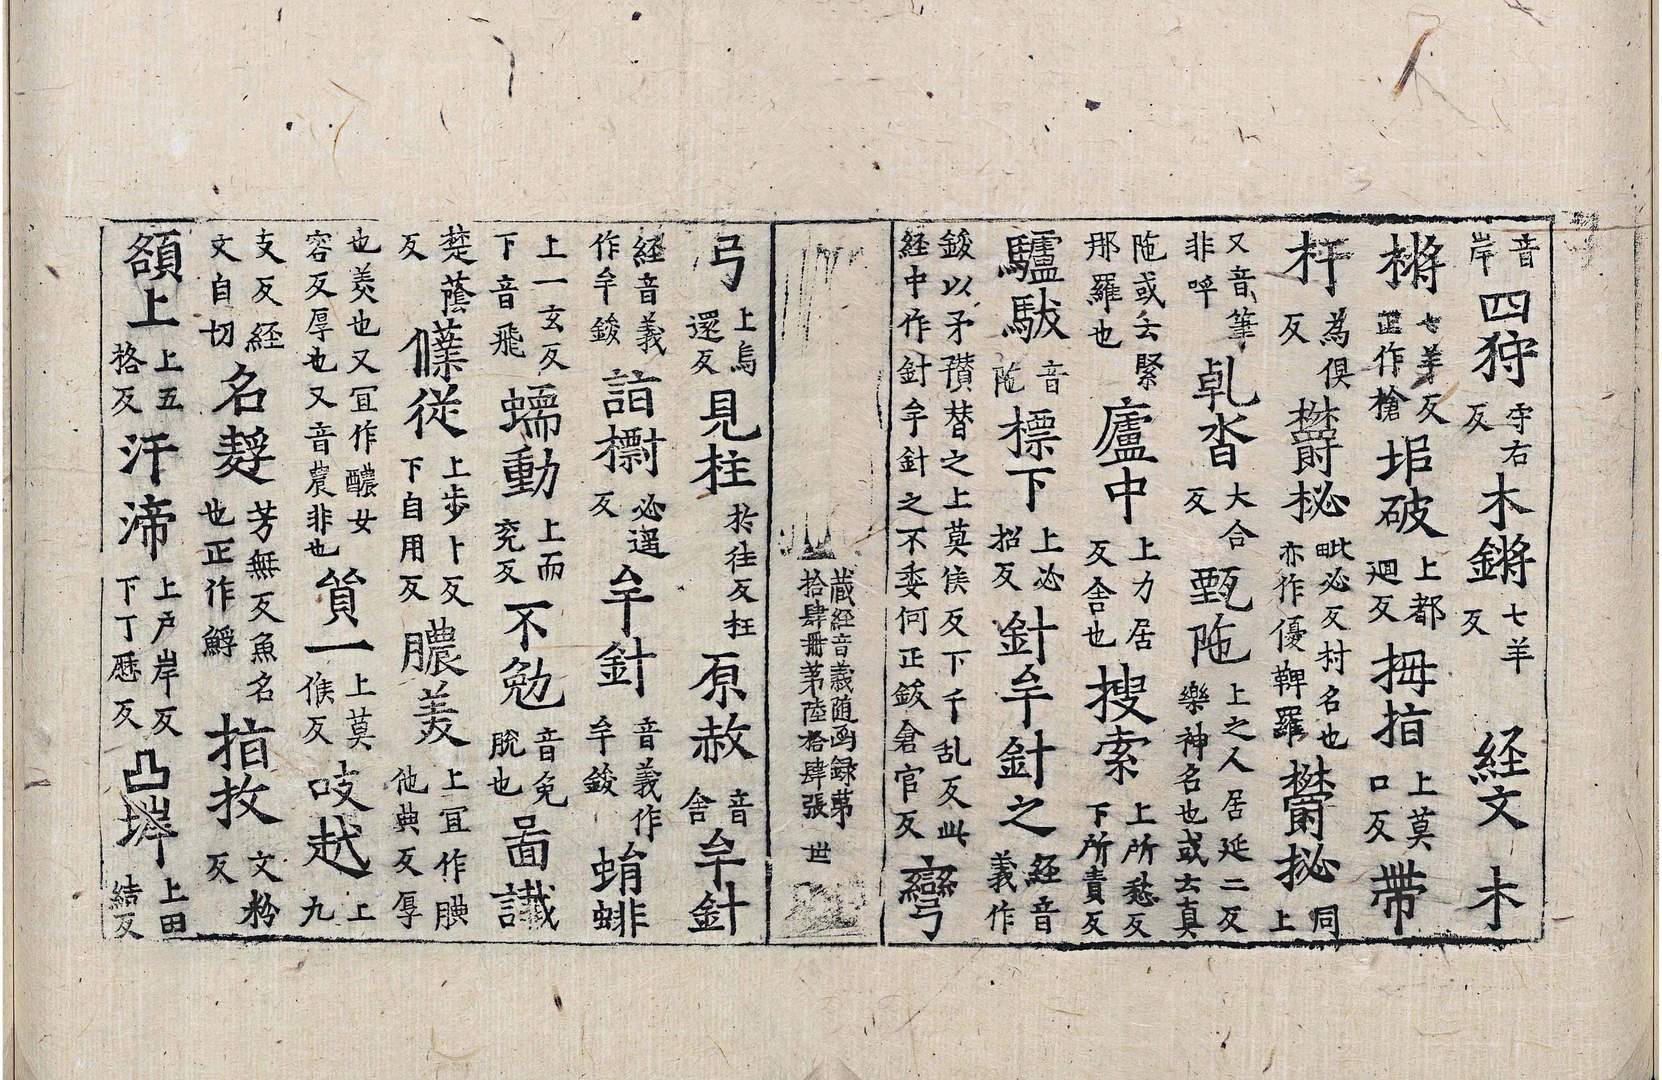 音岸四狩守右反木鏘七羊反経文木
槠七羊反正作槍垖破上都迴反拇指上莫口反帶
杆為俱反欝柲毗必反村名也亦作優鞞羅欝柲同上
又音筆非呼乹沓大合反甄陁上之人居延二反樂神名也或云真
陁或云緊那羅也廬中上力居反舎也搜索上所愁反下所責反
驢馱音陁標下上必招反針牟針之経音義作
鋑以矛䂎替之上莫侯反下千乱反此経中作針牟針之不委何正鋑倉官反彎
藏経音義随函録苐拾肆冊苐陸拾肆張世
弓上烏還反見柱扵往反枉原赦音舍牟針
経音義作牟鋑諳㯕必遥反牟針音義作牟鋑蜎蜚
上一玄反下音飛蠕動上而兖反不勉音免脫也啚讖
楚蔭反僕從上步卜反下自用反膿羙上冝作腆他典反厚
也羙也又冝作醲女容反厚也又音農非也貿一上莫侯反吱越上九
支反経文自切名䴸芳無反魚名也正作䱐捪抆文粉反
額上上五格反汗渧上戸岸反下丁歷反凸垶上田結反